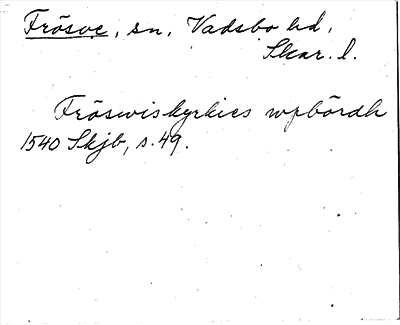 Frösve, sn, Vadsbo hd,
Skar. l.
Fröswiskyrkies wpbördh
1540 Skjb, s. 49.